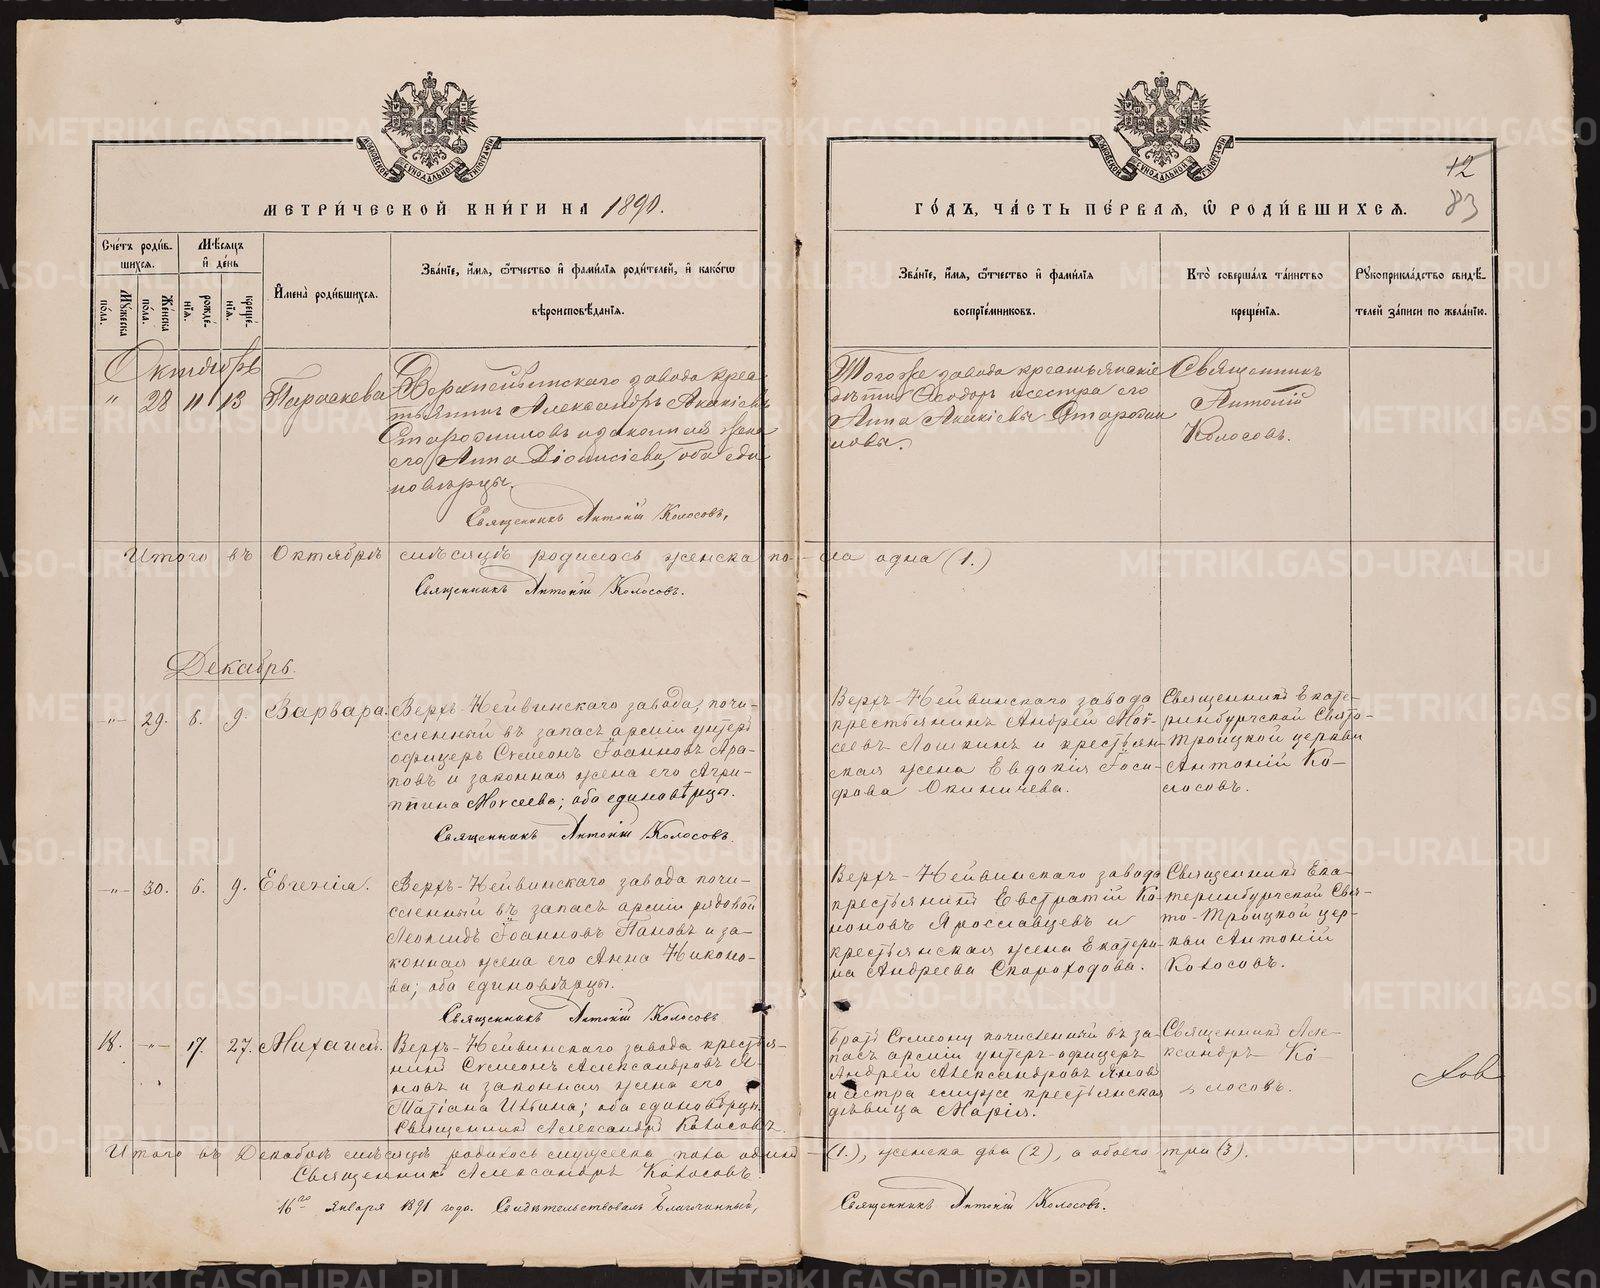 МЕТРИ́ЧЕСКОЙ КНИ́ГИ НА 1890.
ГО́ДЪ, ЧА́СТЬ ПЕ́РВАЯ, Ѿ РОДИ́ВШИХСЯ.
12
83
Сче́тъ роди́в-
шихся.
Му́жеска по́ла.
Же́нска по́ла.
Мѣ́сяцъ
и҆ де́нь
рожде́-
нїя.
креще́-
нїя.
И҆мена̀ роди́вшихся.
Зва́нїе, и҆́мя, ѻ҆́тчество и҆ фами́лїя роди́телей, и҆ како́гѡ
вѣроисповѣ́данїя.
Зва́нїе, и҆́мя, ѻ҆́тчество и҆ фами́лїя
воспрїе́мниковъ.
Кто̀ соверша́лъ та́инство
креще́нїя.
Рꙋкоприкла́дство свидѣ́-
телей за́писи по жела́нїю.
Октябрь
" 28 11 13 Параскева
Верхнейвинскаго завода крес
тьянинъ Александръ Акакіевъ
Стародумовъ и законная жена
его Анна Діонисіева, оба еди
новѣрцы.
Священникъ Антоній Колосовъ.
Того же завода крестьянскіе
дѣти Ѳеодоръ и сестра его
Анна Акакіевы
Священникъ
Антоній
Колосовъ.
Итого въ Октябрѣ мѣсяцѣ родилось женска по-ла одна (1.)
Священникъ Антоній Колосовъ.
Декабрь.
-"- 29. 6. 9. Варвара.
Верхъ-Нейвинскаго завода, почи-
сленный въ запасъ арміи унтеръ
офицеръ Сѵмеонъ Іоанновъ Ара-
повъ и законная жена его Агри-
ппина Моѵсеева; оба единовѣрцы.
Священникъ Антоній Колосовъ.
Верхъ-Нейвинскаго завода
крестьянинъ Андрей Моѵ-
сеевъ Лошкинъ и крестьян-
ская жена Евдокія Іоси-
фова Окиничева.
Священникъ Екате-
ринбургской Свято-
Троицкой церкви
Антоній Ко-
лосовъ.
-"- 30. 6. 9. Евгенія.
Верхъ-Нейвинскаго завода почи-
сленный въ запасъ арміи рядовой
Леонидъ Іоанновъ Пановъ и за-
конная жена его Анна Никоно-
ва; оба единовѣрцы.
Священникъ Антоній Колосовъ
Верхъ-Нейвинскаго завода
крестьянинъ Евстратій Ко-
ноновъ Ярославцевъ и
крестьянская жена Екатери-
на Андреева Скороходова.
Священникъ Ека-
теринбургской Свя-
то-Троицкой цер-
кви Антоній
Колосовъ.
18. -"- 17. 27. Михаилъ.
Верхъ-Нейвинскаго завода крестья-
нинъ Сѵмеонъ Александровъ Я-
новъ и законная жена его
Татіана Ильина; оба единовѣрцы.
Священникъ Александръ Колосовъ.
Братъ Сѵмеону почисленный въ за-
пасъ арміи унтеръ-офицеръ
Андрей Александровъ Яновъ
и сестра ему же крестьянская
дѣвица Марія.
Священникъ Але-
ксандръ Ко-
лосовъ.
Итого въ Декабрѣ мѣсяцѣ родилось мужеска пола одинъ - (1.), женска два (2), а обоего три (3).
Священникъ Александръ Колосовъ
Священникъ Антоній Колосовъ.
16го января 1891 года. Свидѣтельствовалъ Благочинный,
METRIKI.GASO-URAL.RU